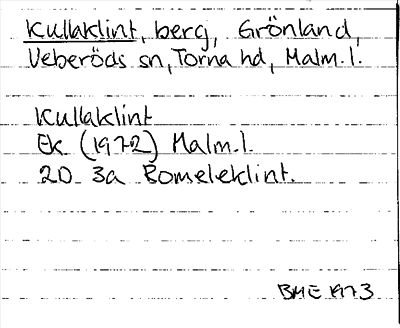 Kullaklint, berg, Grönland,
Veberöds sn, Torna hd, Malm.l.
Kullaklint
Ek (1972) Malm.l.
2D 3a Romeleklint.
BME 1973